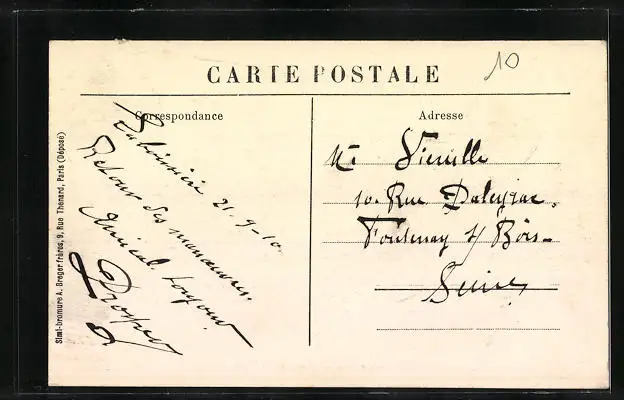 10
CARTE POSTALE
Correspondance
Adresse
21-9-10
Retour des manœuvres.
Amical toujours
Prosper
Mr Vieuille
10. Rue Daleyrac.
Fontenay s/ Bois-
Seine
Simi-bromure A. Breger frères, 9, Rue Thénard, Paris (Déposé)